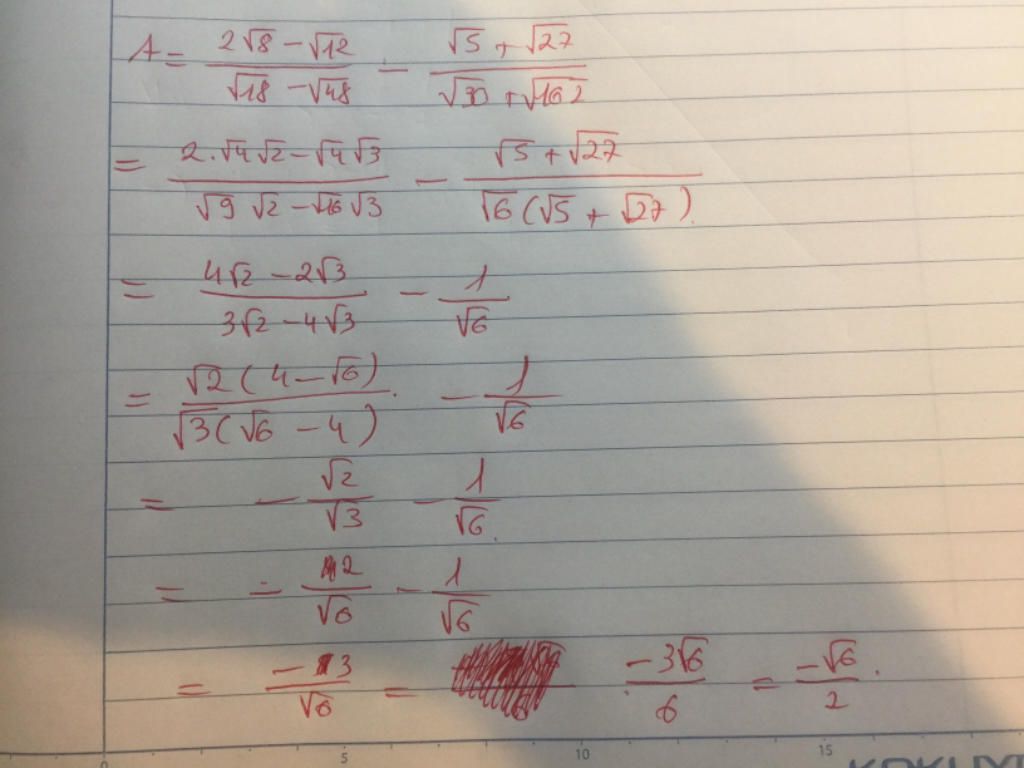 A = \frac{2\sqrt{8} - \sqrt{12}}{\sqrt{18} - \sqrt{48}} - \frac{\sqrt{5} + \sqrt{27}}{\sqrt{30} + \sqrt{162}}
= \frac{2.\sqrt{4}\sqrt{2} - \sqrt{4}\sqrt{3}}{\sqrt{9}\sqrt{2} - \sqrt{16}\sqrt{3}} - \frac{\sqrt{5} + \sqrt{27}}{\sqrt{6}(\sqrt{5} + \sqrt{27})}
= \frac{4\sqrt{2} - 2\sqrt{3}}{3\sqrt{2} - 4\sqrt{3}} - \frac{1}{\sqrt{6}}
= \frac{\sqrt{2}(4 - \sqrt{6})}{\sqrt{3}(\sqrt{6} - 4)} - \frac{1}{\sqrt{6}}
= -\frac{\sqrt{2}}{\sqrt{3}} - \frac{1}{\sqrt{6}}
= -\frac{2}{\sqrt{6}} - \frac{1}{\sqrt{6}}
= \frac{-3}{\sqrt{6}} = \frac{-3\sqrt{6}}{6} = \frac{-\sqrt{6}}{2}.
0 5 10 15